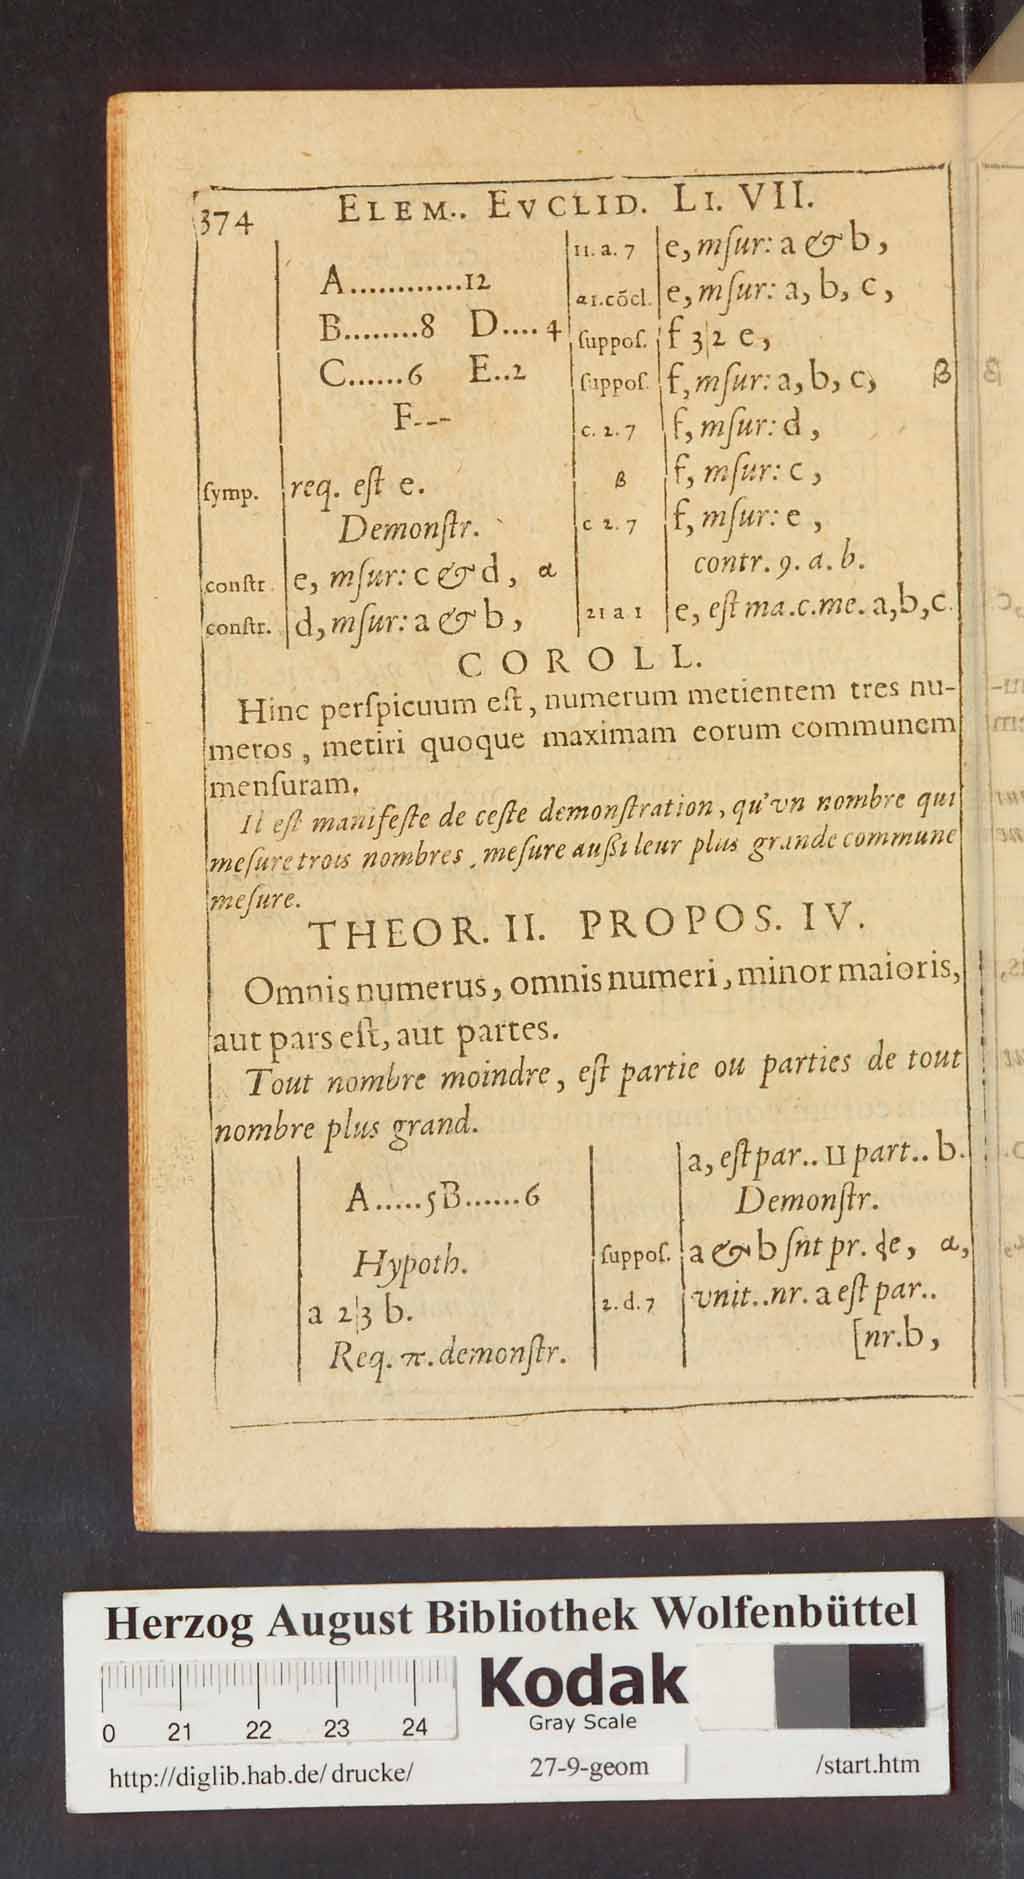 374 ELEM.. EVCLID. LI. VII.
A............12
B........8 D....4
C......6 E..2
F---
ſymp. req. eſt e.
Demonſtr.
conſtr. e, mſur: c & d, α
conſtr. d, mſur: a & b,
11. a. 7 e, mſur: a & b,
α1.cõcl. e, mſur: a, b, c,
ſuppoſ. f 3|2 e,
ſuppoſ. f, mſur: a, b, c, β
c. 2. 7 f, mſur: d,
β f, mſur: c,
c 2. 7 f, mſur: e,
contr. 9. a. b.
21 a 1 e, eſt ma. c. me. a, b, c.
COROLL.
Hinc perſpicuum eſt, numerum metientem tres nu-
meros, metiri quoque maximam eorum communem
menſuram.
Il eſt manifeſte de ceſte demonſtration, qu'vn nombre qui
meſure trois nombres, meſure außi leur plus grande commune
meſure.
THEOR. II. PROPOS. IV.
Omnis numerus, omnis numeri, minor maioris,
aut pars eſt, aut partes.
Tout nombre moindre, eſt partie ou parties de tout
nombre plus grand.
A.....5 B......6
Hypoth.
a 2|3 b.
Req. π. demonſtr.
a, eſt par.. II part.. b.
Demonſtr.
ſuppoſ. a & b ſnt pr. de, α,
2. d. 7 vnit.. nr. a eſt par..
[nr. b,
Herzog August Bibliothek Wolfenbüttel
Kodak
Gray Scale
0 21 22 23 24
http://diglib.hab.de/drucke/ 27-9-geom /start.htm